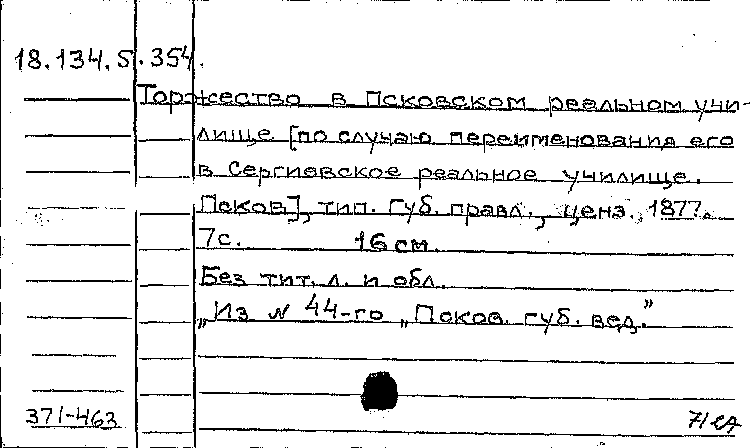 18.134.5.354.
Торжество в Псковском реальном учи-
лище [по случаю переименования его
в Сергиевское реальное училище.
Псков], тип. Губ. правл., ценз. 1877.
7с. 16 см.
Без тит. л. и обл.
„Из № 44-го „Псков. губ. вед."
371-463